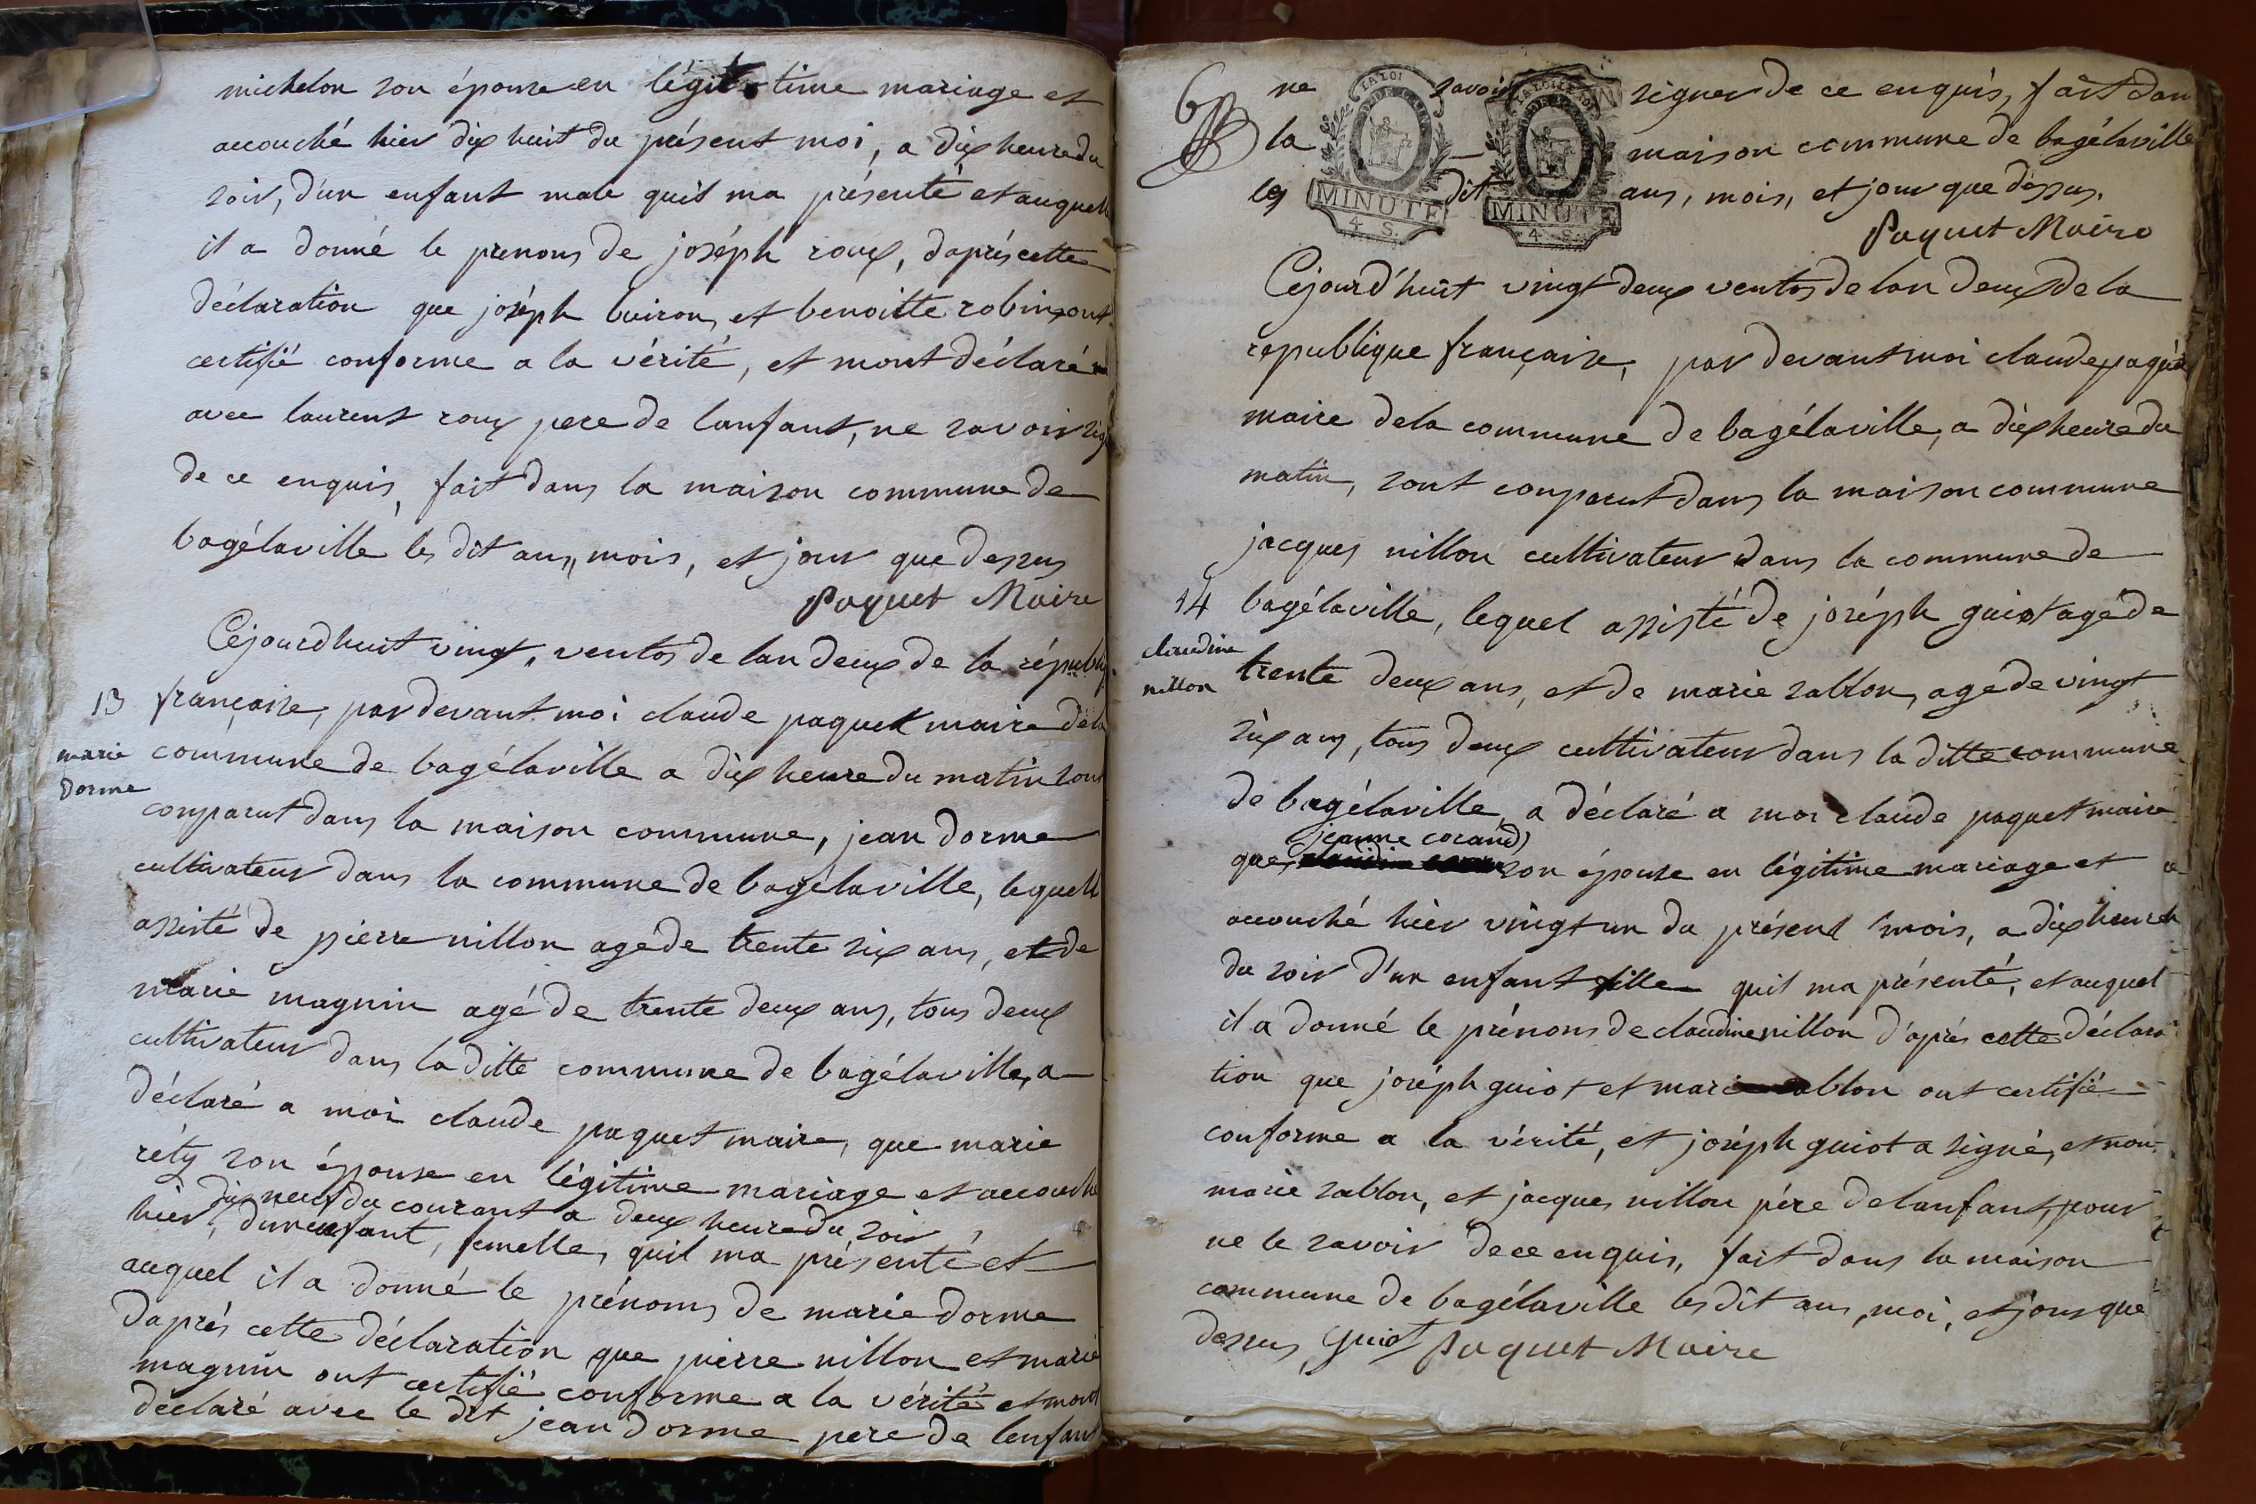 michelon son épouse en légit time mariage et
accouché hier dix huit du présent moi, a dix heure du
soir, d'un enfant male quil ma présenté et auquell
il a donné le prenoms de joséph roux, daprés cette
déclaration que joséph buiron, et benoitte robin, ont
certifié conforme a la vérité, et mont déclaré
avec laurent roux pere de lanfant, ne savoir sig
de ce enquis, fait dans la maison commune de
bagélaville les dit ans, mois, et jour que dessus
Paquet Maire
Cejourdhuit vingt, ventos de lan deux de la républiq
13 française, par devant moi claude paquet maire dela
marie
dorme
commune de bagélaville a dix heure du matin sont
conparut dans la maison commune, jean dorme
cultivateur dans la commune de bagélaville, lequell
assisté de pierre nillon agé de trente six ans, et de
marie magnin agé de trente deux ans, tous deux
cultivateur dans la ditte commune de bagélaville, a
déclaré a moi claude paquet maire, que marie
réty son épouse en légitime mariage et accouché
dix neuf du courant a deux heure du soir
hier, d'un enfant, femelle, quil ma présenté et
auquel il a donné le prénoms de marie dorme
daprés cette déclaration que pierre nillon et marie
magnin ont certifié conforme a la vérité et mont
déclaré avec le dit jean dorme pere de lenfant
6 ne savoir signer de ce enquis, fait dans
la maison commune de bagélaville
les dit ans, mois, et jour que dessus.
LA LOI
MINUTE
4 S.
LA LOI
MINUTE
4 S.
Paquet Maire
Cejourd'huit vingt deux ventos de lan deux de la
republique française, par devant moi claude paquet
maire dela commune de bagélaville, a dix heure du
matin, sont conparut dans la maison commune
jacques nillon cultivateur dans la commune de
14 bagélaville, lequel assisté de joséph guiot agé de
claudine
nillon
trente deux ans, et de marie sablon, age de vingt
six ans, tous deux cultivateur dans la ditte commune
de bagélaville, a déclaré a moi claude paquet maire
jeanne corand
que, son épouse en légitime mariage et a
accouché hier vingt un du présent mois, a dix heure
du soir d'un enfant fille quil ma présenté, et auquel
il a donné le prénoms de claudine nillon d'aprés cette déclara
tion que joséph guiot et marie sablon ont certifié
conforme a la vérité, et joséph guiot a signé, et non
marie sablon, et jacques nillon pére de lanfant, pour
ne le savoir de ce enquis, fait dans la maison
commune de bagélaville les dit ans, moi, et jour que
dessus, Guiot Paquet Maire